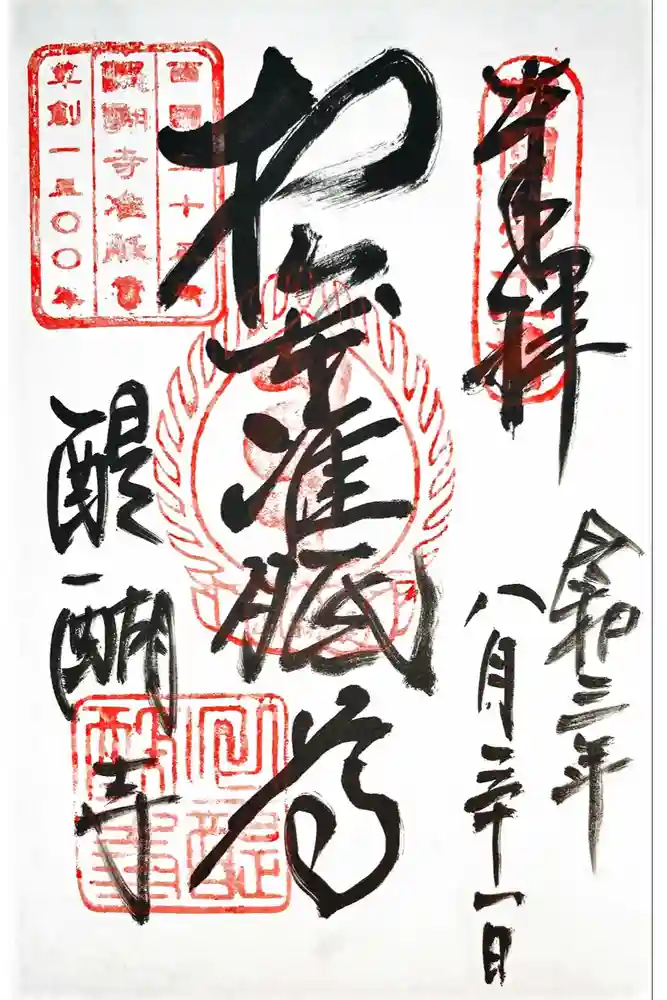 奉拝
令和三年
八月二十一日
根本准胝尊
醍醐寺
西国第十一番
醍醐寺准胝堂
草創一三〇〇年